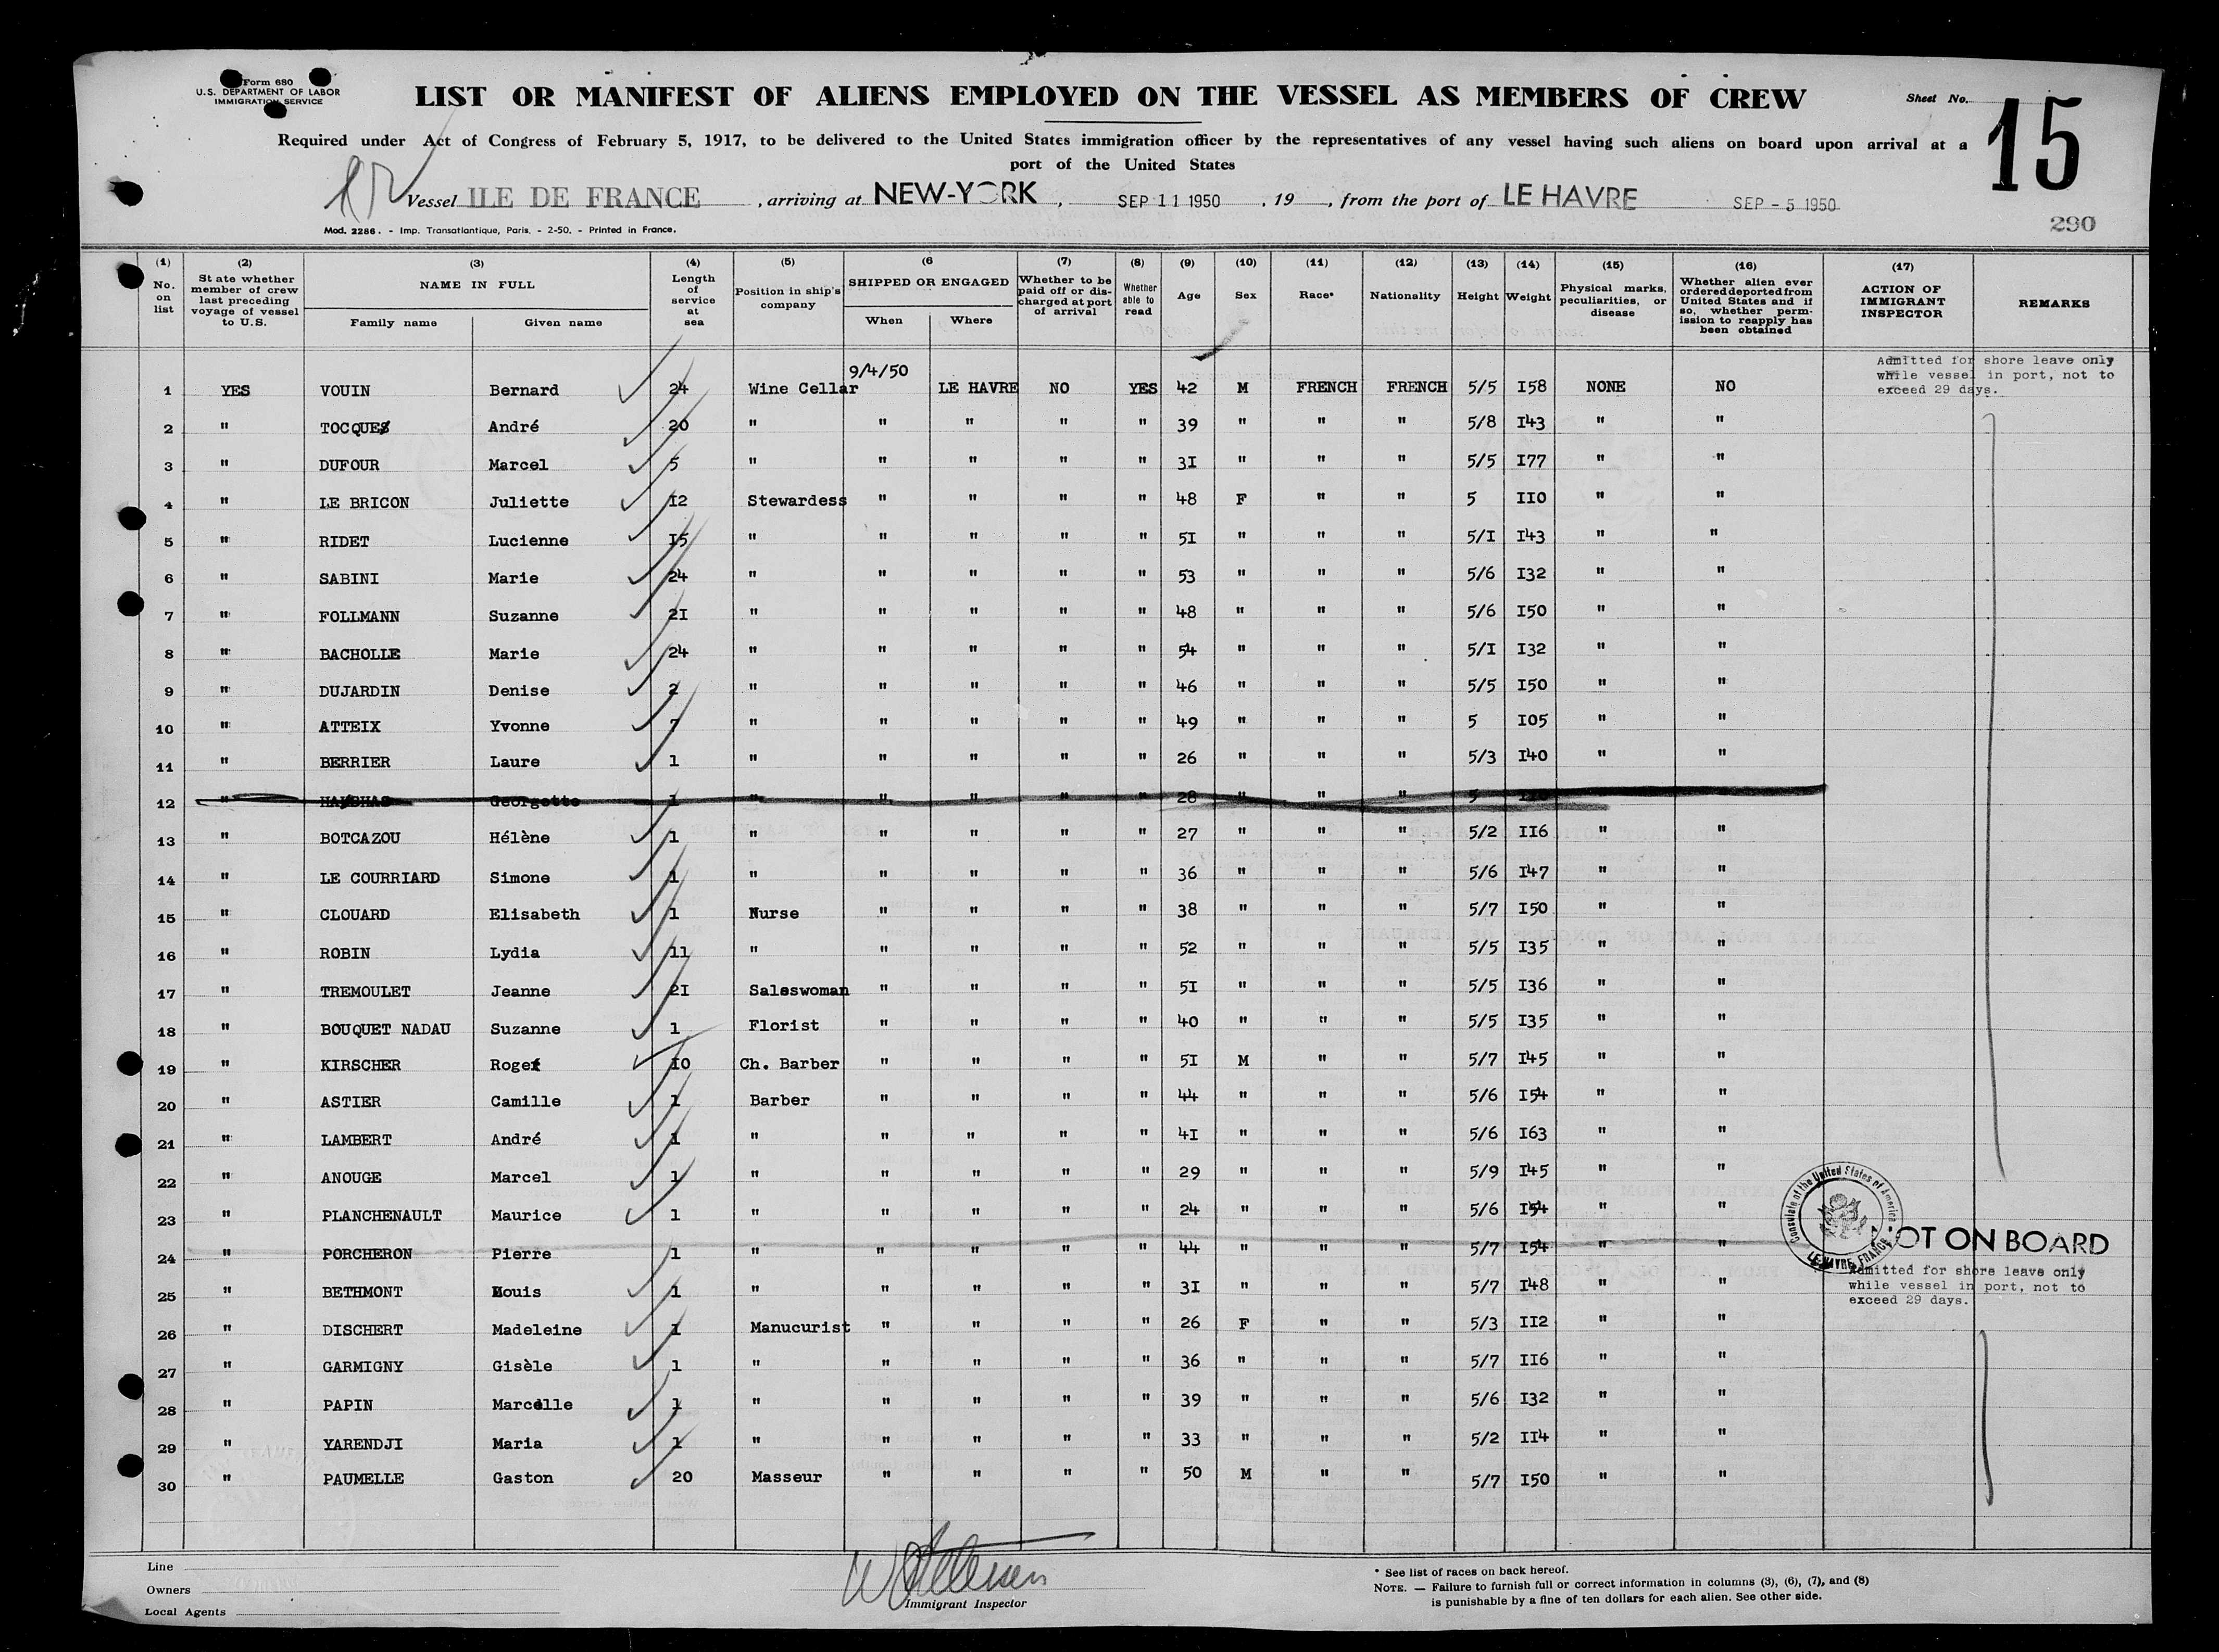 Form 680
U.S. DEPARTMENT OF LABOR
IMMIGRATION SERVICE
LIST OR MANIFEST OF ALIENS EMPLOYED ON THE VESSEL AS MEMBERS OF CREW
Sheet No. 15
Required under Act of Congress of February 5, 1917, to be delivered to the United States immigration officer by the representatives of any vessel having such aliens on board upon arrival at a
port of the United States
Vessel ILE DE FRANCE, arriving at NEW-YORK, SEP 11 1950, 19 , from the port of LE HAVRE SEP - 5 1950
Mod. 2286. - Imp. Transatlantique, Paris. - 2-50. - Printed in France.
290
(1) No. on list
(2) State whether member of crew last preceding voyage of vessel to U.S.
(3) NAME IN FULL Family name Given name
(4) Length of service at sea
(5) Position in ship's company
(6 SHIPPED OR ENGAGED When Where
(7) Whether to be paid off or discharged at port of arrival
(8) Whether able to read
(9) Age
(10) Sex
(11) Race*
(12) Nationality
(13) Height
(14) Weight
(15) Physical marks, peculiarities, or disease
(16) Whether alien ever ordered deported from United States and if so, whether permission to reapply has been obtained
(17) ACTION OF IMMIGRANT INSPECTOR
REMARKS
Admitted for shore leave only
while vessel in port, not to
exceed 29 days.
1 YES VOUIN Bernard 24 Wine Cellar 9/4/50 LE HAVRE NO YES 42 M FRENCH FRENCH 5/5 I58 NONE NO
2 " TOCQUE André 20 " " " " " 39 " " " 5/8 I43 " "
3 " DUFOUR Marcel 5 " " " " " 3I " " " 5/5 I77 " "
4 " LE BRICON Juliette I2 Stewardess " " " " 48 F " " 5 II0 " "
5 " RIDET Lucienne I5 " " " " " 5I " " " 5/I I43 " "
6 " SABINI Marie 24 " " " " " 53 " " " 5/6 I32 " "
7 " FOLLMANN Suzanne 2I " " " " " 48 " " " 5/6 I50 " "
8 " BACHOLLE Marie 24 " " " " " 54 " " " 5/I I32 " "
9 " DUJARDIN Denise 2 " " " " " 46 " " " 5/5 I50 " "
10 " ATTEIX Yvonne 7 " " " " " 49 " " " 5 I05 " "
11 " BERRIER Laure 1 " " " " " 26 " " " 5/3 I40 " "
12 " Georgette 1 " " " " " 28 " " " 5
13 " BOTCAZOU Hélène 1 " " " " " 27 " " " 5/2 II6 " "
14 " LE COURRIARD Simone 1 " " " " " 36 " " " 5/6 I47 " "
15 " CLOUARD Elisabeth 1 Nurse " " " " 38 " " " 5/7 I50 " "
16 " ROBIN Lydia 11 " " " " " 52 " " " 5/5 I35 " "
17 " TREMOULET Jeanne 2I Saleswoman " " " " 5I " " " 5/5 I36 " "
18 " BOUQUET NADAU Suzanne 1 Florist " " " " 40 " " " 5/5 I35 " "
19 " KIRSCHER Roger 10 Ch. Barber " " " " 5I M " " 5/7 I45 " "
20 " ASTIER Camille 1 Barber " " " " 44 " " " 5/6 I54 " "
21 " LAMBERT André 1 " " " " " 4I " " " 5/6 I63 " "
22 " ANOUGE Marcel 1 " " " " " 29 " " " 5/9 I45 " "
23 " PLANCHENAULT Maurice 1 " " " " " 24 " " " 5/6 I54 " "
24 " PORCHERON Pierre 1 " " " " " 44 " " " 5/7 I54 " " NOT ON BOARD
Consulate of the United States of America
LE HAVRE, FRANCE
Admitted for shore leave only
while vessel in port, not to
exceed 29 days.
25 " BETHMONT Louis 1 " " " " " 3I " " " 5/7 I48 " "
26 " DISCHERT Madeleine 1 Manucurist " " " " 26 F " " 5/3 II2 " "
27 " GARMIGNY Gisèle 1 " " " " " 36 " " " 5/7 II6 " "
28 " PAPIN Marcelle 1 " " " " " 39 " " " 5/6 I32 " "
29 " YARENDJI Maria 1 " " " " " 33 " " " 5/2 II4 " "
30 " PAUMELLE Gaston 20 Masseur " " " " 50 M " " 5/7 I50 " "
Line
Owners
Local Agents
Immigrant Inspector
* See list of races on back hereof.
NOTE. — Failure to furnish full or correct information in columns (3), (6), (7), and (8)
is punishable by a fine of ten dollars for each alien. See other side.